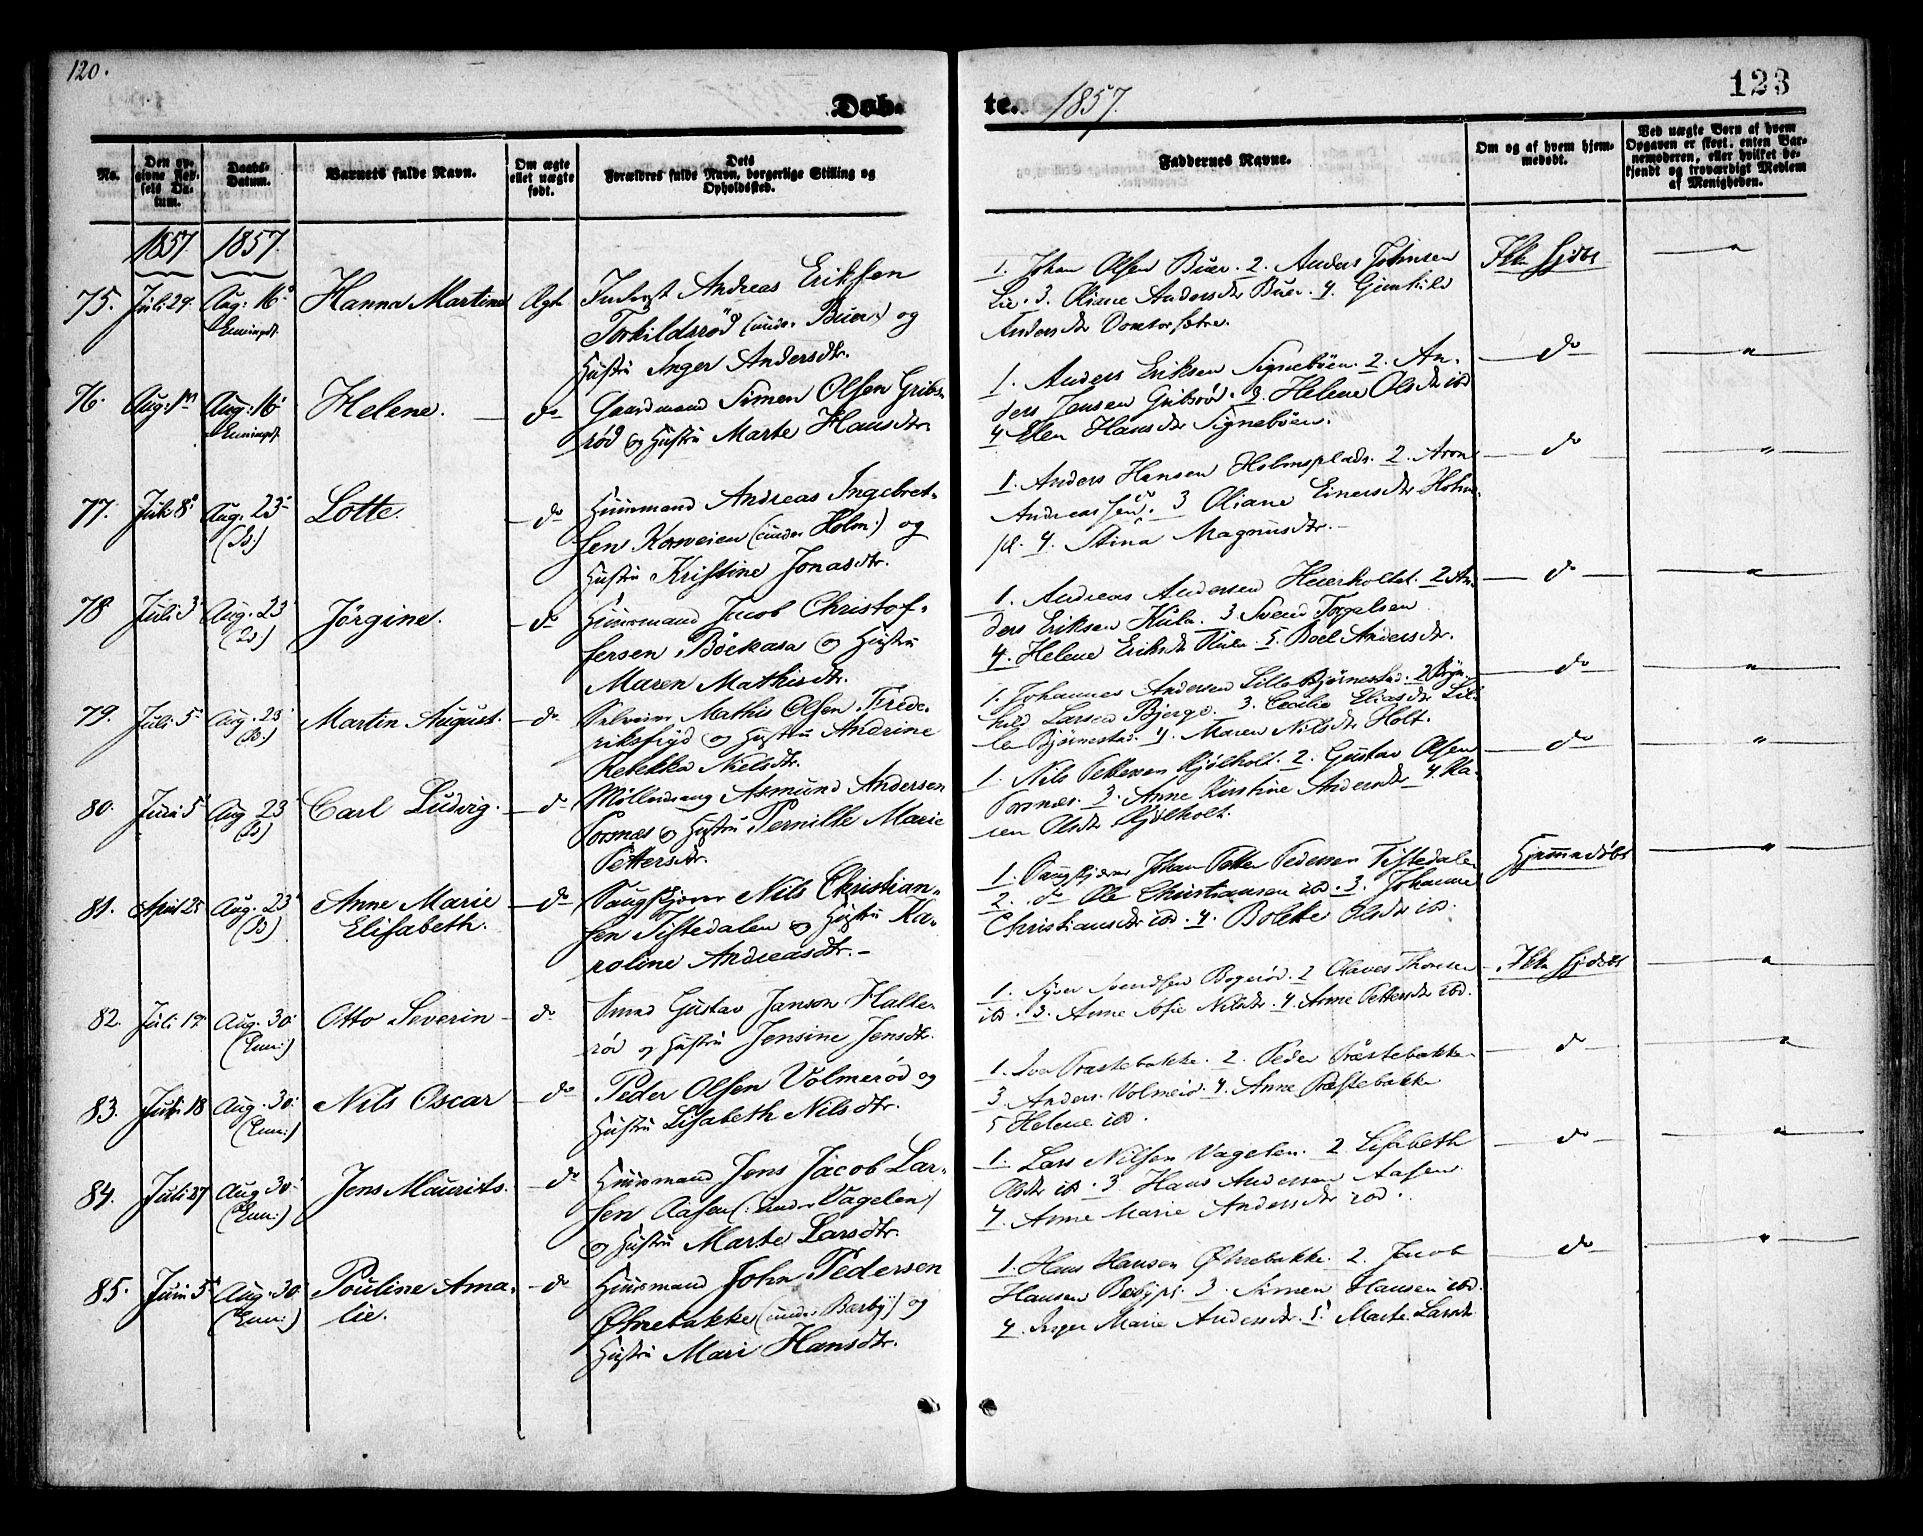 120.
123
Døb-
te. 1857.
No.
Den opgivne Fødsels Datum.
Daabs-Datum.
Barnets fulde Navn.
Om ægte eller uægte født.
Dets Forældres fulde Navn, borgerlige Stilling og Opholdssted.
Faddernes Navne.
Om og af hvem hjemmedøbt.
Ved uægte Børn af hvem Opgaven er skeet, enten Barnemoderen, eller hvilket bekjendt og troværdigt Medlem af Menigheden.
1857. 1857.
75. Juli 24. Aug: 16 Hanna Martine Ægte Inderst Andreas Eriksen
Torkildsrød (under Buer) og
Hustru Inger Andersdtr.
1. Johan Olsen Buer. 2. Anders Johnsen
Lie. 3. Oliane Andersdtr Buer. 4. Gunhild
Andersdtr
76. Aug: 1 Aug: 16 Helene. do Gaardmand Simen Olsen Gribs-
rød og Hustru Marte Hansdtr.
1. Anders Eriksen Signebøen. 2. An-
ders Jensen Gribsrød. 3. Helene Olsdtr ibd
4 Elen Hansdtr Signebøen. do
77. Juli 8 Aug. 23 Lotte. do Huusmand Andreas Ingebret-
sen Korsveien (under Holm) og
Hustru Kristine Jonasdtr.
1. Anders Hansen Holmsplads. 2. Aron
Andreassen do. 3 Oliane Einersdtr Holms
pl. 4. Stina Magnusdtr. do
78 Juli 3 Aug. 23 Jørgine. do Huusmand Jacob Christof-
fersen Bøekasa og Hustru
Maren Mathisdtr.
1. Andreas Andersen Heierholtet. 2 An-
ders Eriksen Kula. 3 Svend Torgelsen
4. Helene Eriksdtr Kula 5. Boel Andersdtr. do
79. Juli 5 Aug. 23 Martin August. do Mathis Olsen Fred-
riksfryd og Hustru Andrine
Rebekka Nielsdtr.
1. Johannes Andersen Lille Bjørnestad. 2
Larsen Bjerge. 3. Cecilie Eliasdtr Lil-
le Bjørnestad. 4. Maren Nilsdtr Holt. do
80. Juni 5 Aug 23 Carl Ludvig. do Møllersvend Asmund Andersen
Torsnæs og Hustru Pernille Marie
Pettersdtr.
1. Nils Pettersen Kjølholt. 2. Gustav Olsen
Torsnæs. 3. Anne Kirstine Andersdtr 4. Ka-
ren Olsdtr Kjølholt. do
81. April 25 Aug. 23 Anne Marie
Elisabeth. do Saugskjærer Nils Christian-
sen Tistedalen og Hustru Ka-
roline Andreasdtr. -
1. Saugskjærer Johan Petter Pedersen Tistedalen
2. do Ole Christiansen ibd. 3. Johanne
Christiansdtr ibd. 4. Bolette Olsdtr ibd. Hjemmedøbt
82. Juli 17 Aug. 30 (Enn:) Otto Severin do Smed Gustav Janson Halle-
rød og Hustru Jensine Jensdtr.
1. Syver Svendsen Bogerød. 2 Olaves Thoresen
ibd. 3. Anne Sofie Nilsdtr. 4 Anne Pettersdtr ibd.
83. Juli 18 Aug. 30. (Enn:) Nils Oscar do Peder Olsen Volmerød og
Hustru Lisabeth Nilsdtr.
1. Iver Præstebakke. 2. Peder Præstebakke
3. Anders Volmerød. 4. Anne Præstebakke
5 Helene ibd. do
84. Juli 27 Aug. 30. (Enn:) Jens Maurits. do Huusmand Jens Jacob Lar-
sen Aasen (: under Vagelen)
og Hustru Marte Larsdtr.
1. Lars Nilsen Vagelen. 2. Lisabeth
Olsdtr ibd. 3. Hans Andersen Aasen.
4. Anne Marie Andersdtr ibd. do
85. Juni 5 Aug. 30 (Enn:) Pouline Ama-
lie. do Huusmand John Pedersen
Øhrebakke (under Berby) og
Hustru Mari Hansdtr.
1. Hans Hansen Øhrebakke. 2. Jacob
Hansen 3. Simen Hansen ibd.
4. Inger Marie Andersdtr. 5. Marte Larsdtr do